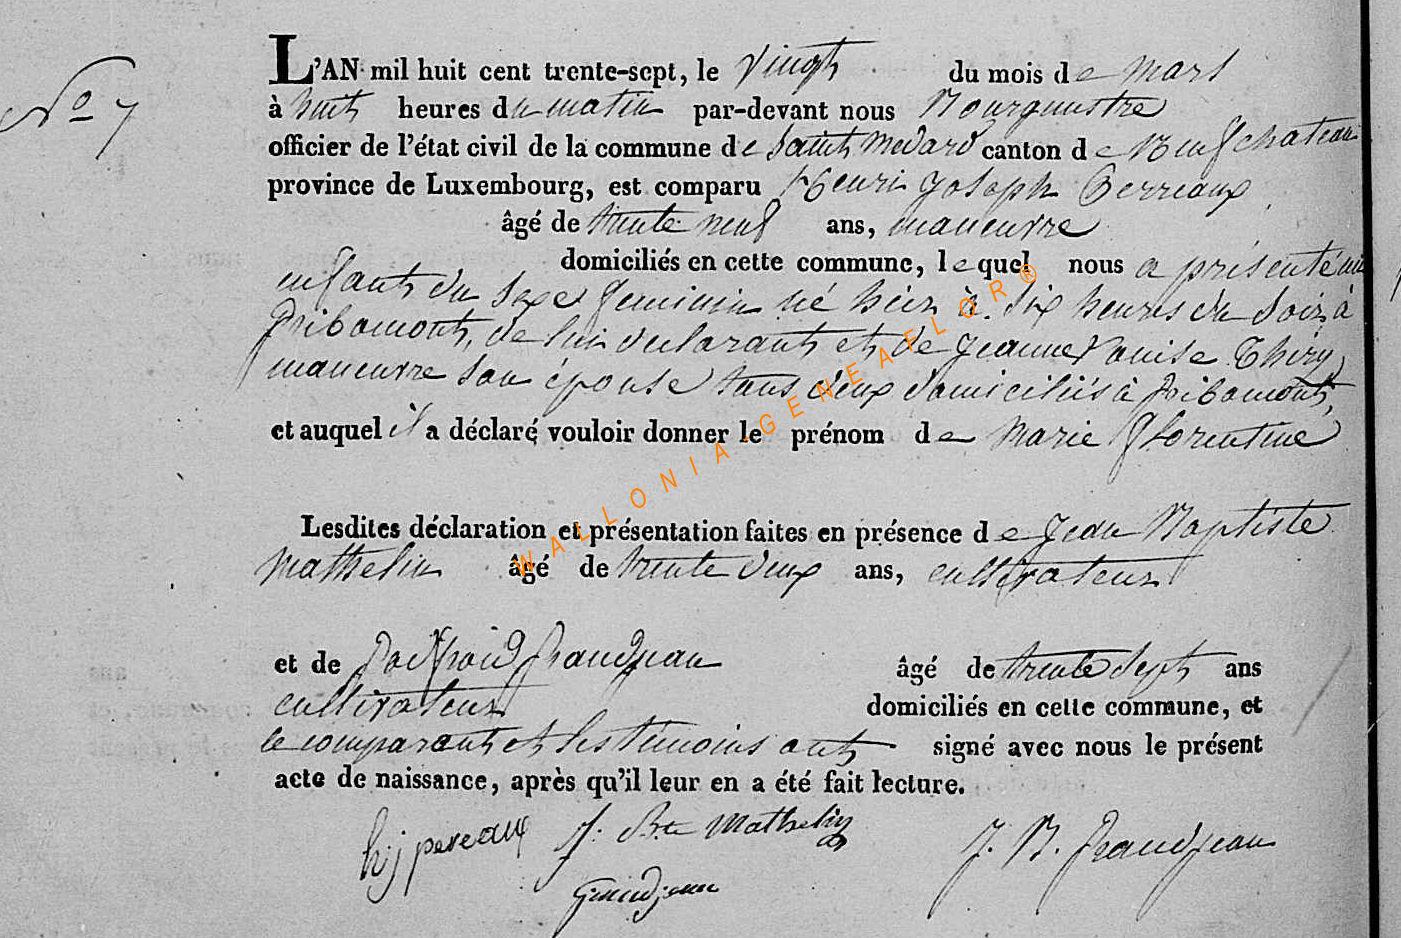 No 7
L'AN mil huit cent trente-sept, le vingt du mois de mars
à huit heures du matin par-devant nous Bourguestre
officier de l'état civil de la commune de Saint Medard canton de Neufchateau
province de Luxembourg, est comparu Henri Joseph Perreaux
âgé de trente neuf ans, maneuvre
domiciliés en cette commune, lequel nous a présenté un
enfant du sexe feminin né hier à six heures du soir à
Gribomont, de lui declarant et de Jeanne Louise Thiry
maneuvre son épouse tous deux domiciliés à Gribomont,
et auquel il a déclaré vouloir donner le prénom de Marie Florentine
Lesdites déclaration et présentation faites en présence de Jean Baptiste
Mathelin âgé de trente deux ans, cultivateur
et de Grandjean âgé de trente sept ans
cultivateur domiciliés en cette commune, et
le comparant et les temoins ont signé avec nous le présent
acte de naissance, après qu'il leur en a été fait lecture.
h.j pereaux J. Bte Mathelin J. B. Grandjean
Grandjean
WALLONIA-GENEAFLOR®